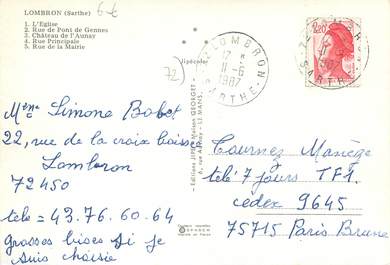 LOMBRON (Sarthe)
1. L'Eglise
2. Rue de Pont de Gennes
3. Château de l'Aunay
4. Rue Principale
5. Rue de la Mairie
6-6
72
LOMBRON
17 H
11-6
1987
SARTHE
2,20
Mme Simone Bobet
22, rue de la croix boisée
Lombron
72450
tele = 43.76.60.64
grosses bises si je
suis choisie
Tournez Manège
télé 7 jours TF1
cedex 9645
75715 Paris Brune